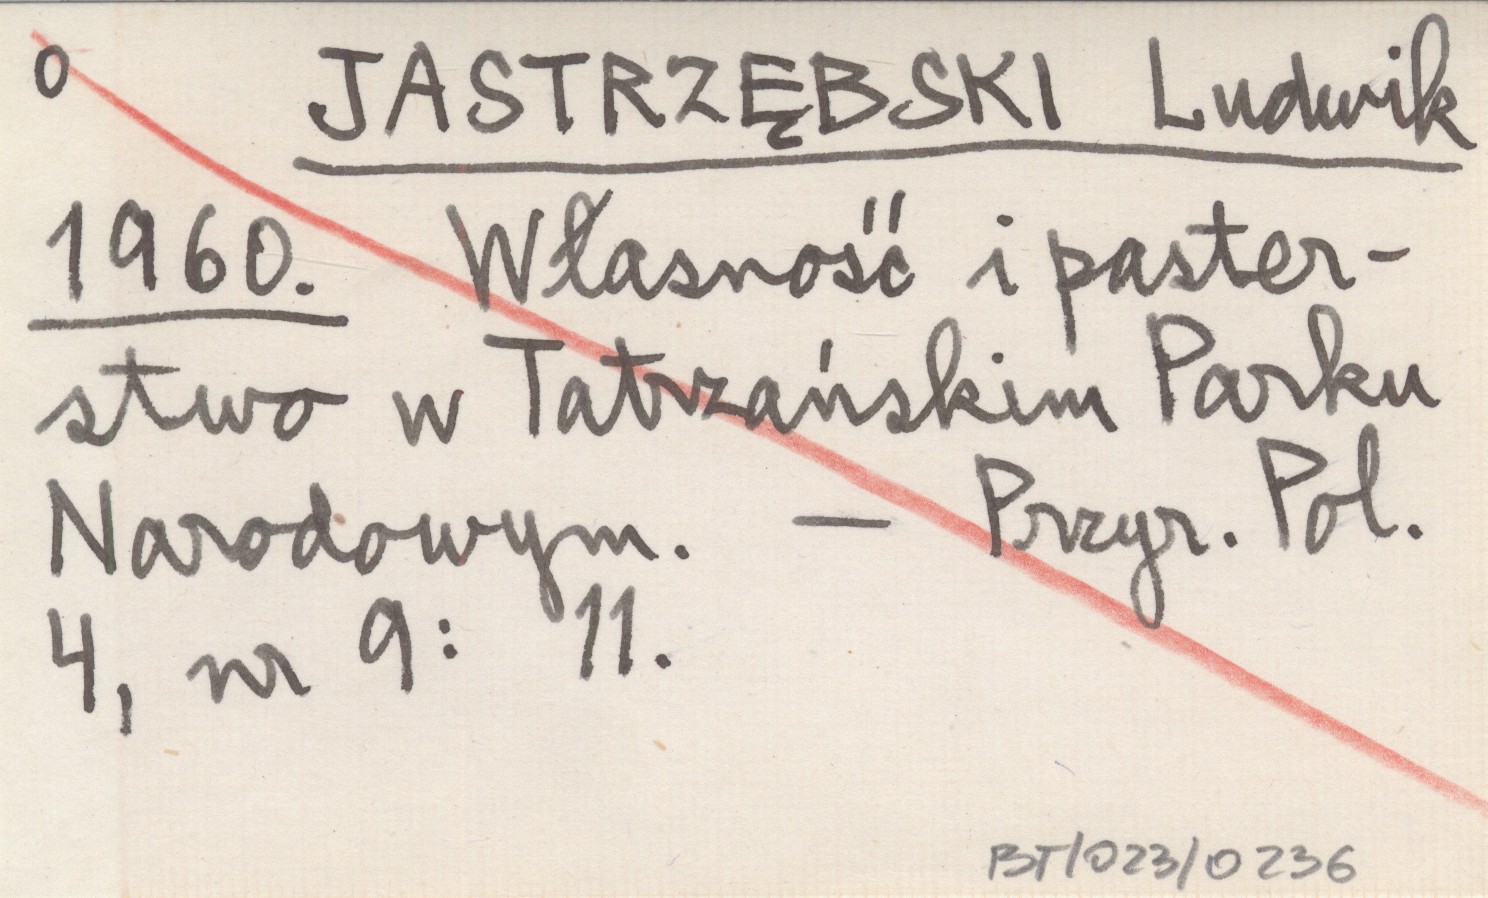 o JASTRZĘBSKI Ludwik
1960. Własność i paster-
stwo w Tatrzańskim Parku
Narodowym. — Przyr. Pol.
4, nr 9: 11.
BT/023/0236